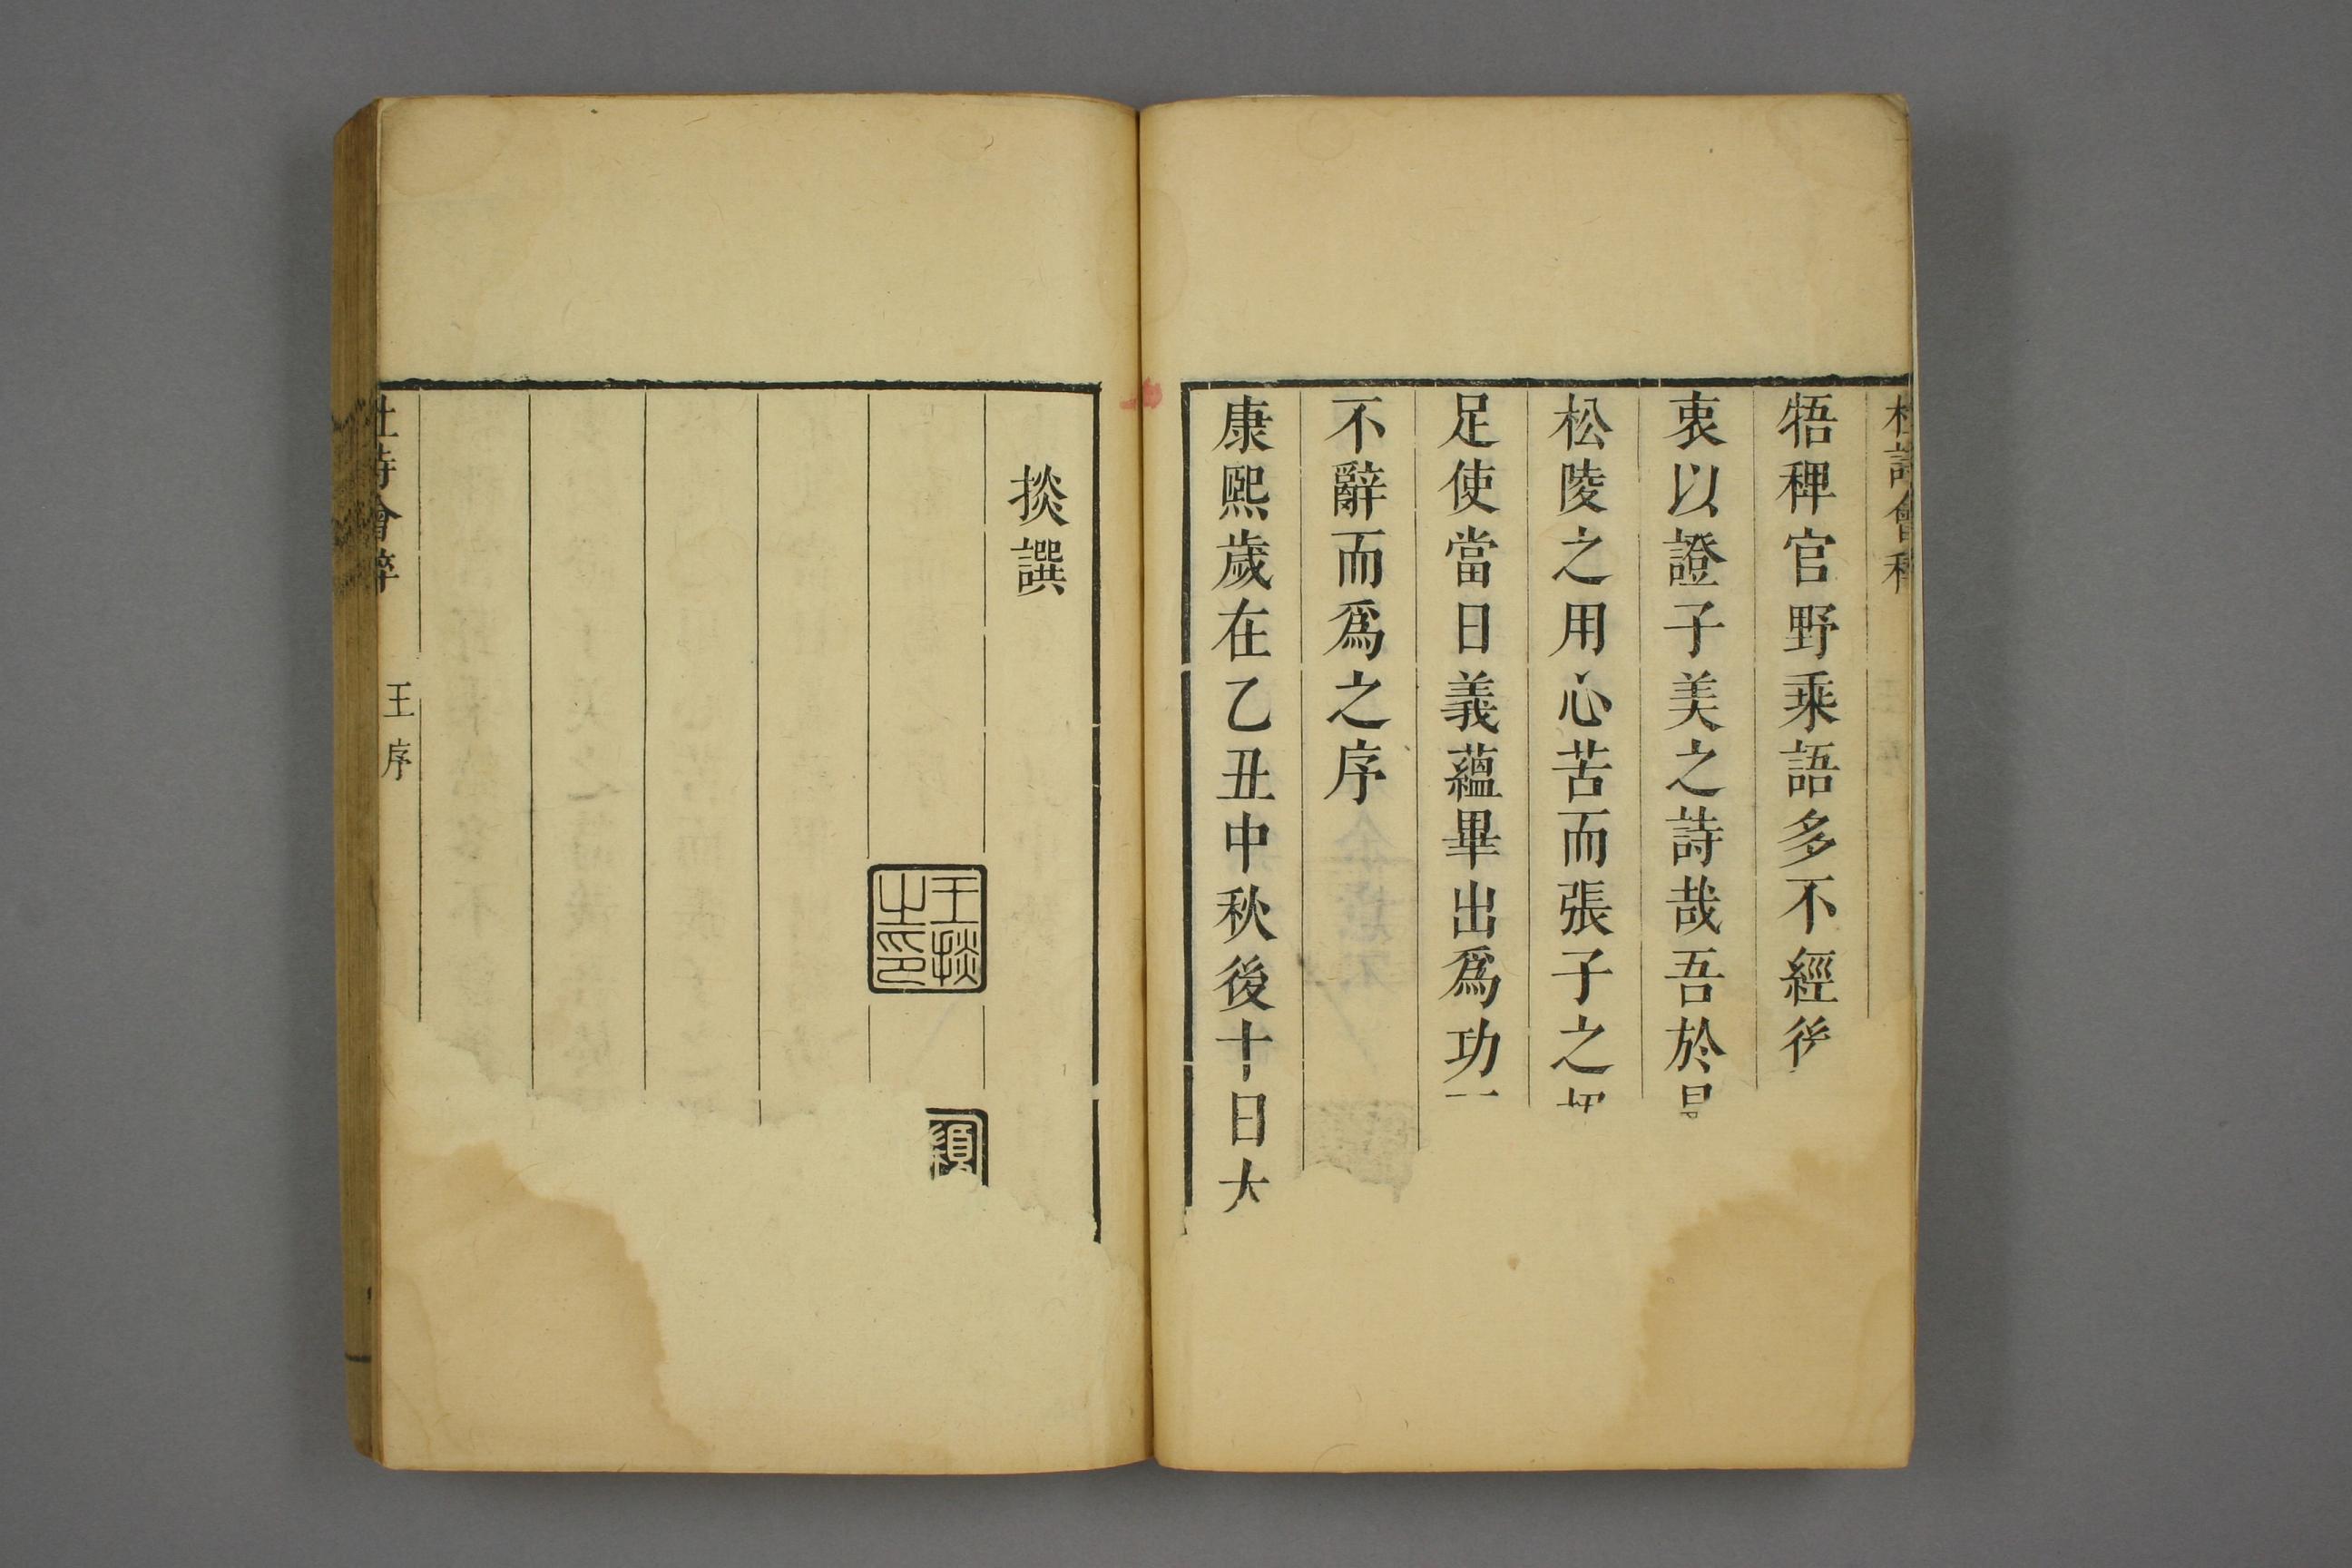 杜詩會稡
牾稗官野乘語多不經後
衷以證子美之詩哉吾於
松陵之用心苦而張子之
足使當日義蘊畢出爲功
不辭而爲之序
康熙歲在乙丑中秋後十日太
掞譔
王掞之印
杜詩會稡
王序